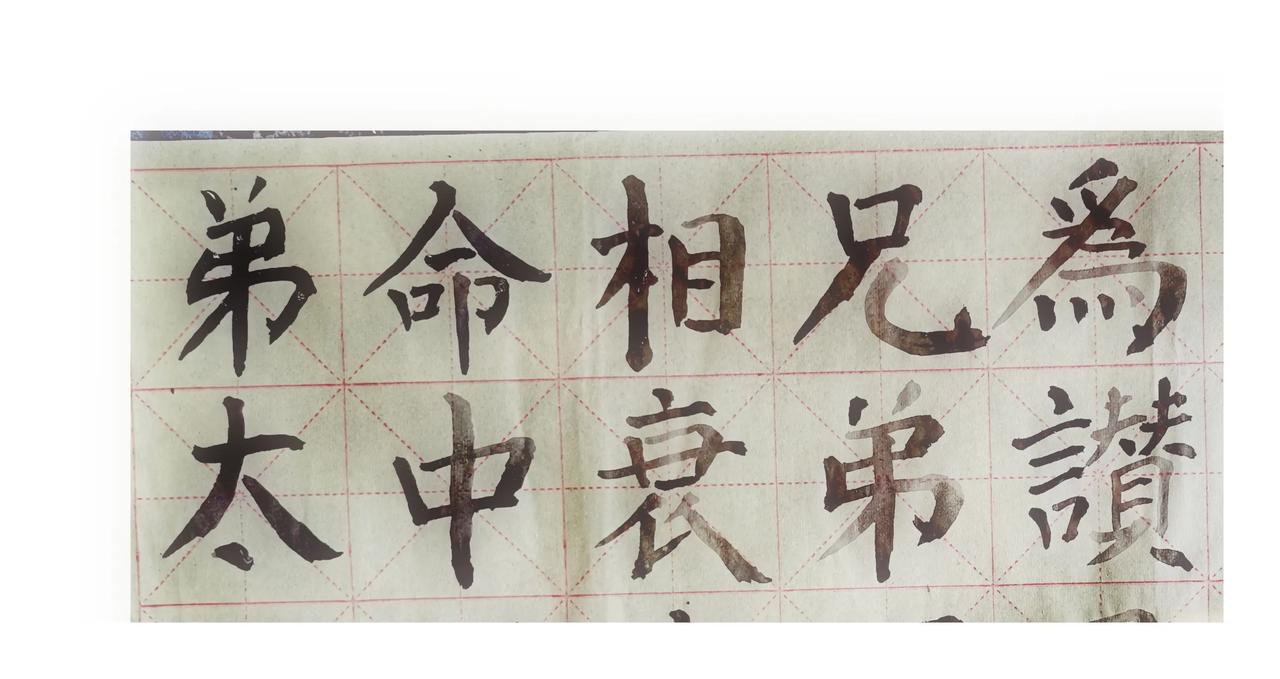 爲讚
兄弟
相衰
命中
弟太